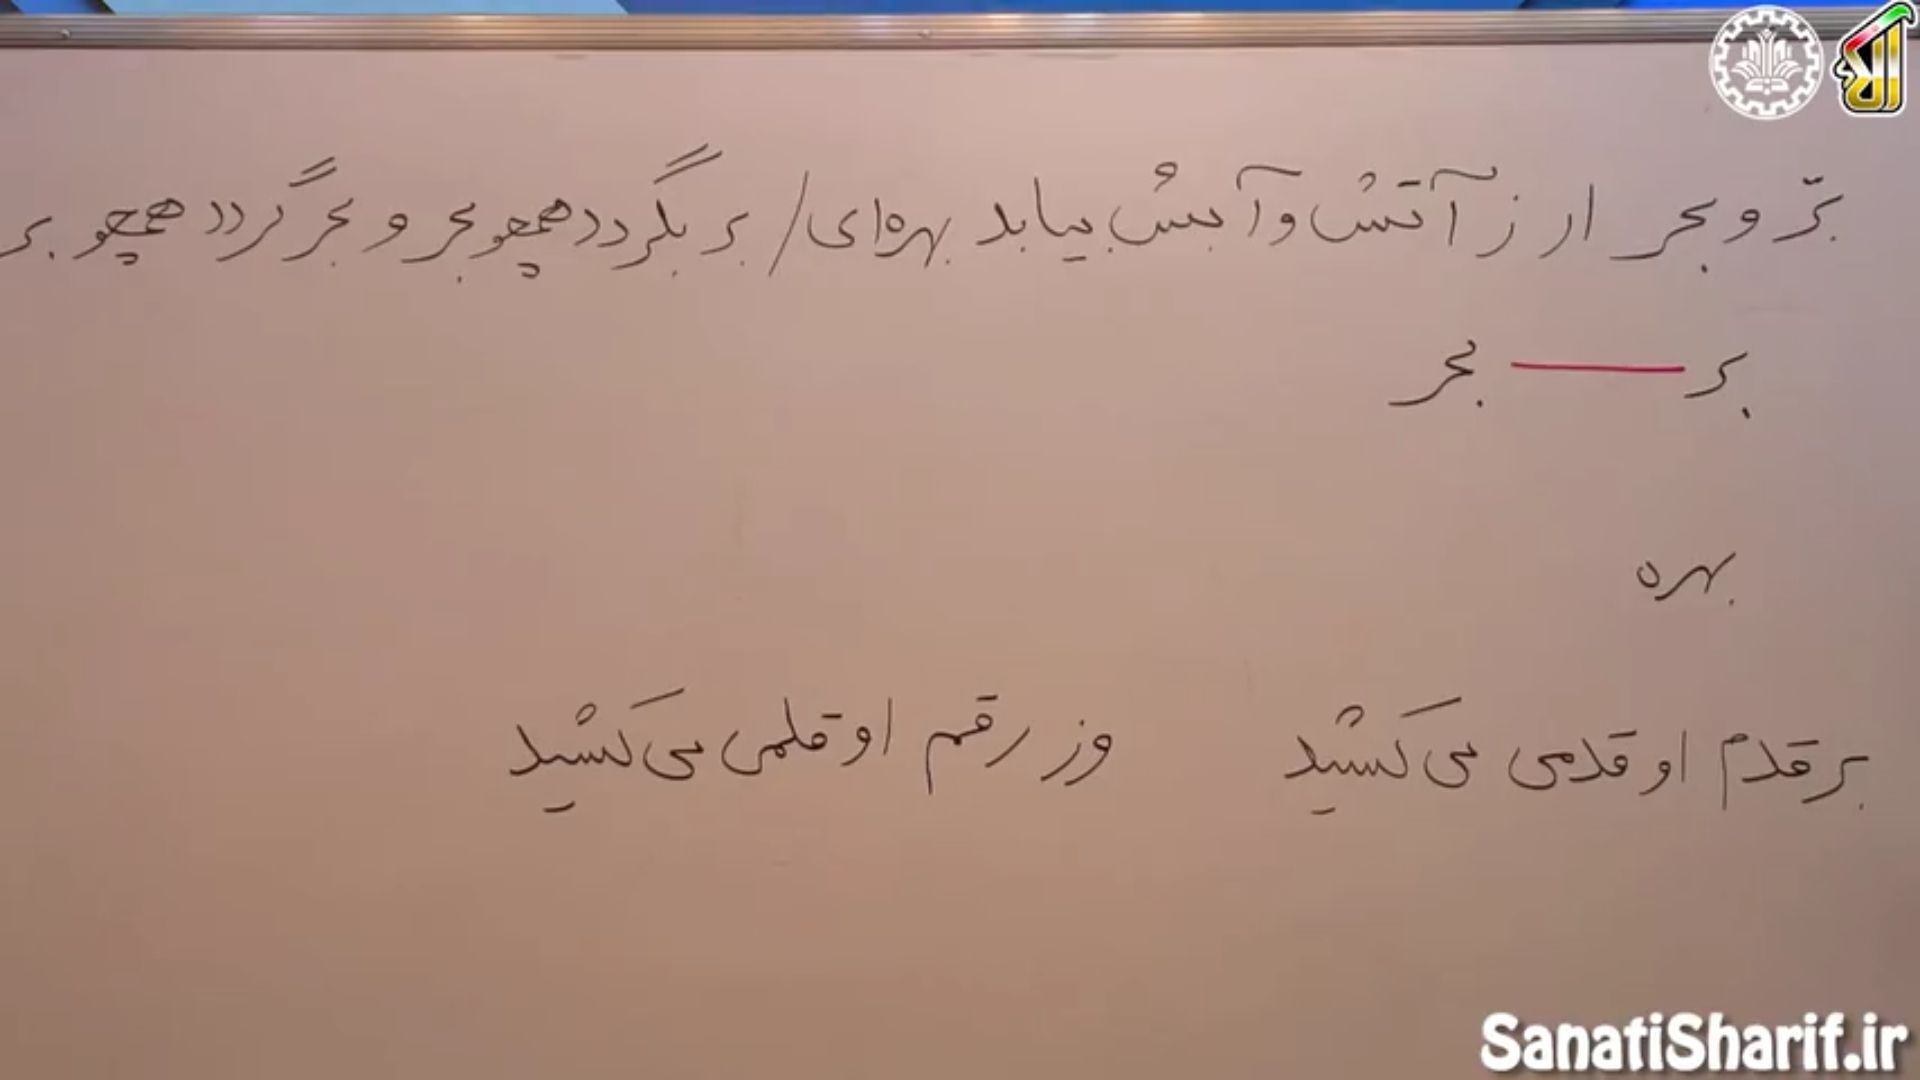 برّ و بحر ار ز آتش و آبش بیابد بهره‌ای / بر بگردد همچو بحر و بحر گردد همچو بر
بر — بحر
بهره
بر قدم او قدمی می‌کشید وز رقم او قلمی می‌کشید
SanatiSharif.ir